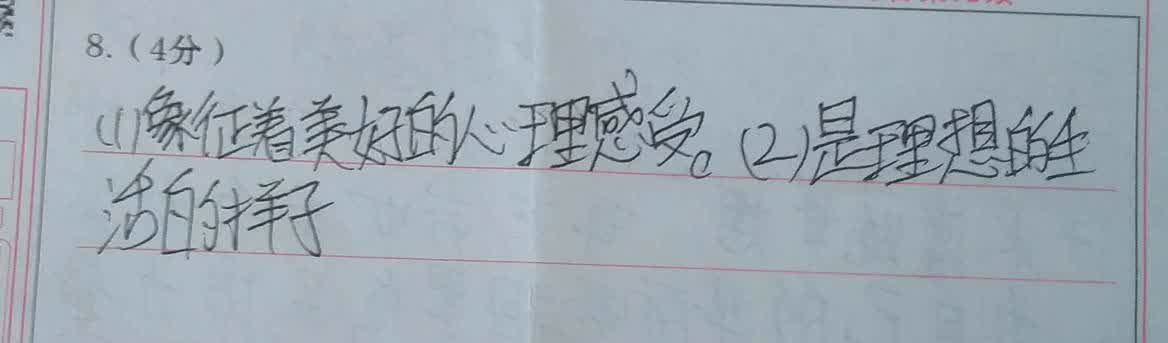 8.（4分）
(1)象征着美好的心理感受。(2)是理想的生
活的样子